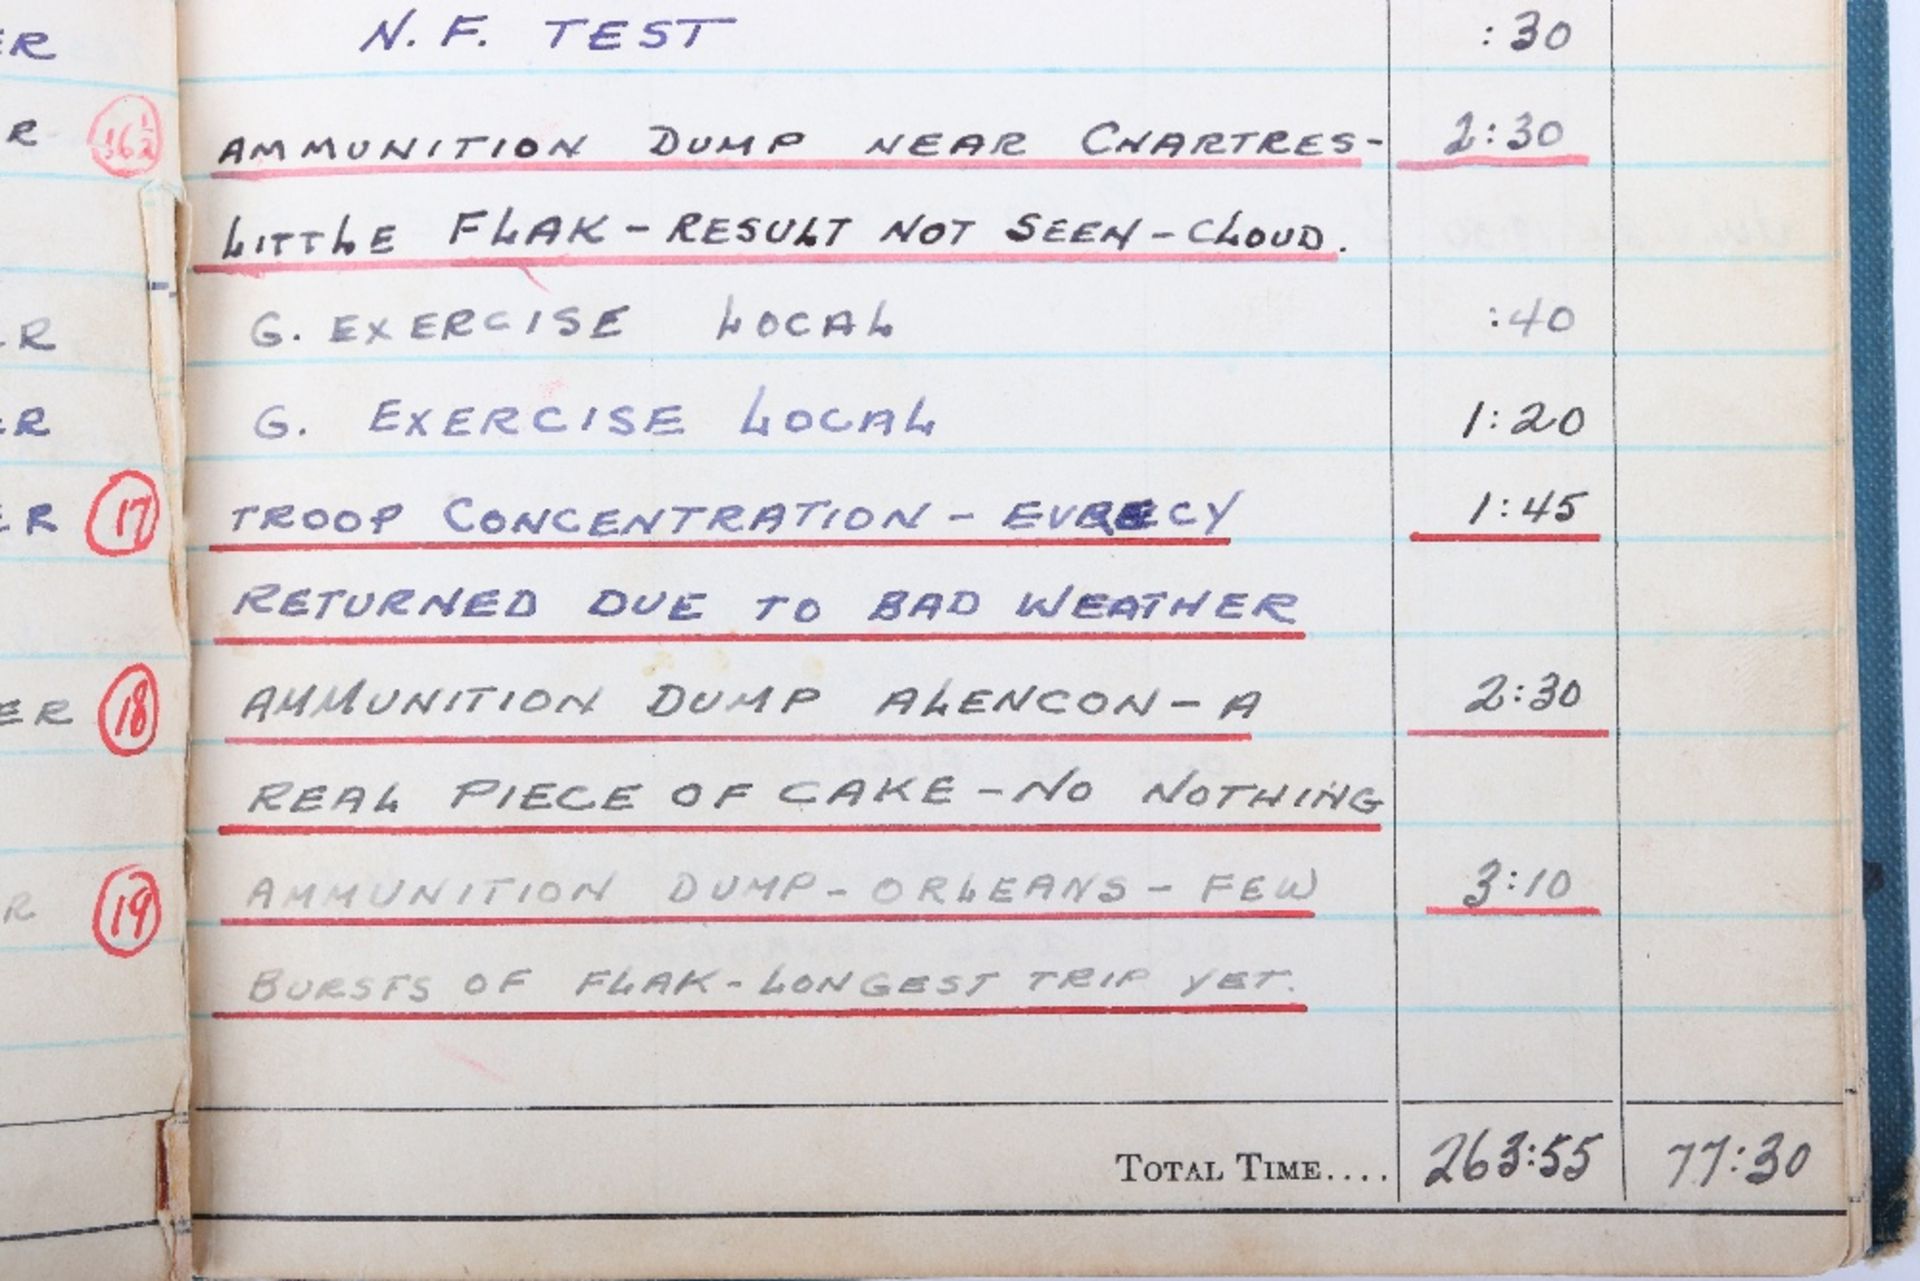 ER N. F. TEST :30
R 16½ AMMUNITION DUMP NEAR CHARTRES- 2:30
LITTLE FLAK - RESULT NOT SEEN - CLOUD.
ER G. EXERCISE LOCAL :40
ER G. EXERCISE LOCAL 1:20
ER 17 TROOP CONCENTRATION - EVRECY 1:45
RETURNED DUE TO BAD WEATHER
ER 18 AMMUNITION DUMP ALENCON - A 2:30
REAL PIECE OF CAKE - NO NOTHING
R 19 AMMUNITION DUMP - ORLEANS - FEW 3:10
BURSTS OF FLAK - LONGEST TRIP YET.
TOTAL TIME.... 263:55 77:30